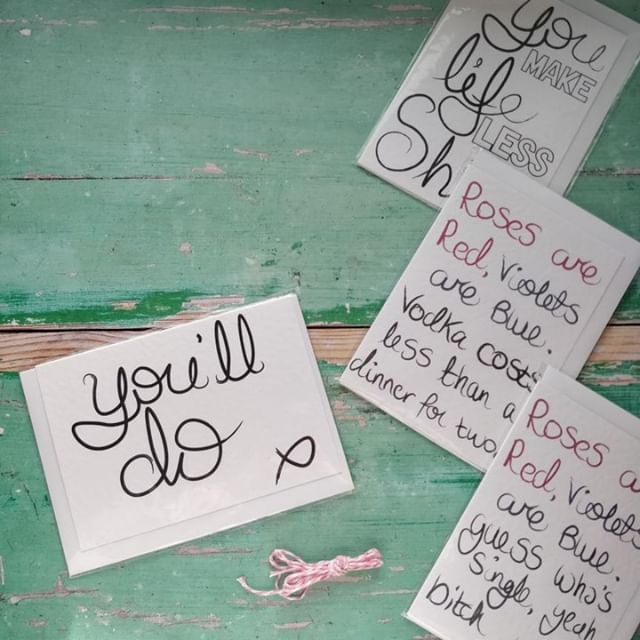 You
MAKE
life
LESS
Sh
Roses are
Red, Violets
are Blue.
Vodka costs
less than a
dinner for two
you'll
do x
Roses a
Red, Violets
are Blue.
guess who's
single, yeah
bitch